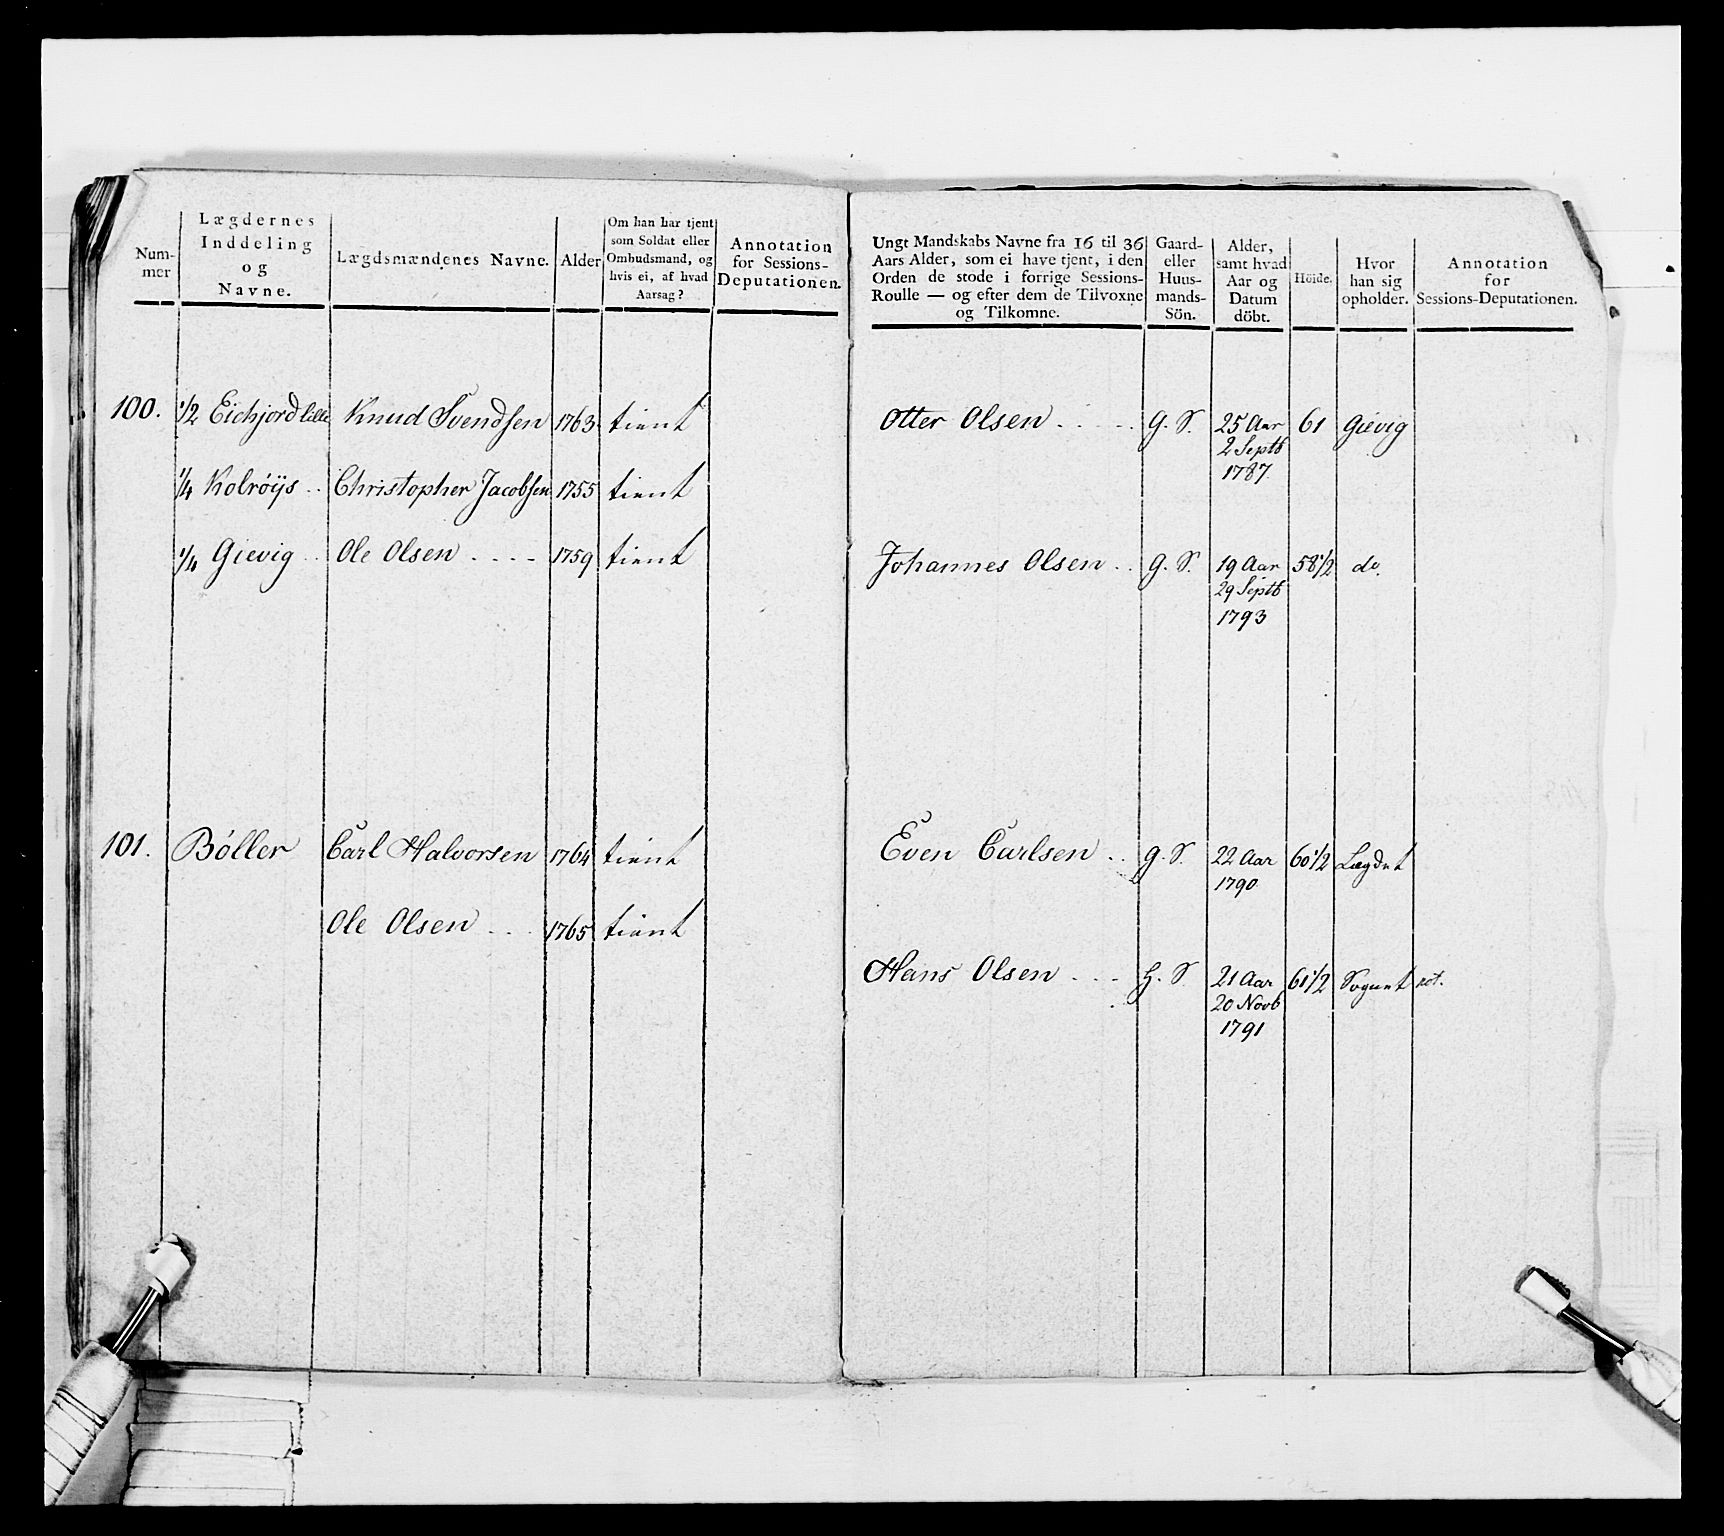 Num-
mer
Lægdernes
Inddeling
og
Navne.
Lægdsmændenes Navne.
Alder
Om han har tjent
som Soldat eller
Ombudsmand, og
hvis ei, af hvad
Aarsag?
Annotation
for Sessions-
Deputationen.
100. 1/2 Eichjord lille Knud Svendsen 1763 tient
1/4 Kolröijs .. Christopher Jacobsen 1755 tient
1/4 Gievig .. Ole Olsen .... 1759 tient
101. Böller Carl Halvorsen 1764 tient
Ole Olsen ... 1765 tient
Ungt Mandskabs Navne fra 16 til 36
Aars Alder, som ei have tjent, i den
Orden de stode i forrige Sessions-
Roulle — og efter dem de Tilvoxne
og Tilkomne.
Gaard-
eller
Huus-
mands-
Sön.
Alder,
samt hvad
Aar og
Datum
döbt.
Höide.
Hvor
han sig
opholder.
Annotation
for
Sessions-Deputationen.
Otter Olsen ..... G. S. 25 Aar 61 Gievig
2 Septb
1787.
Johannes Olsen .. G. S. 19 Aar 58 1/2 do.
29 Septb
1793
Even Carlsen .. G. S. 22 Aar 60 1/2 Lægdet
1790
Hans Olsen ... H. S. 21 Aar 61 1/2 Sognet
20 Novb
1791